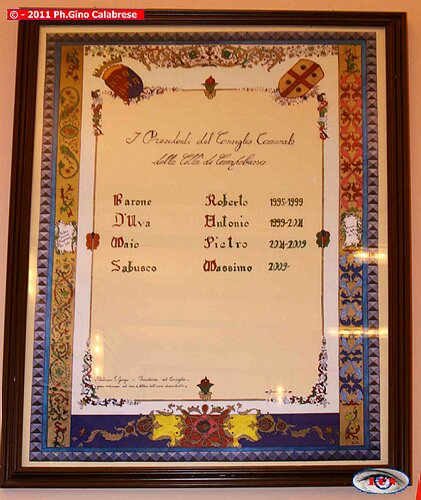 © - 2011 Ph.Gino Calabrese
I Presidenti del Consiglio Comunale
della Città di Campobasso
Barone Roberto 1995-1999
D'Uva Antonio 1999-2004
Maio Pietro 2004-2009
Sabusco Massimo 2009-